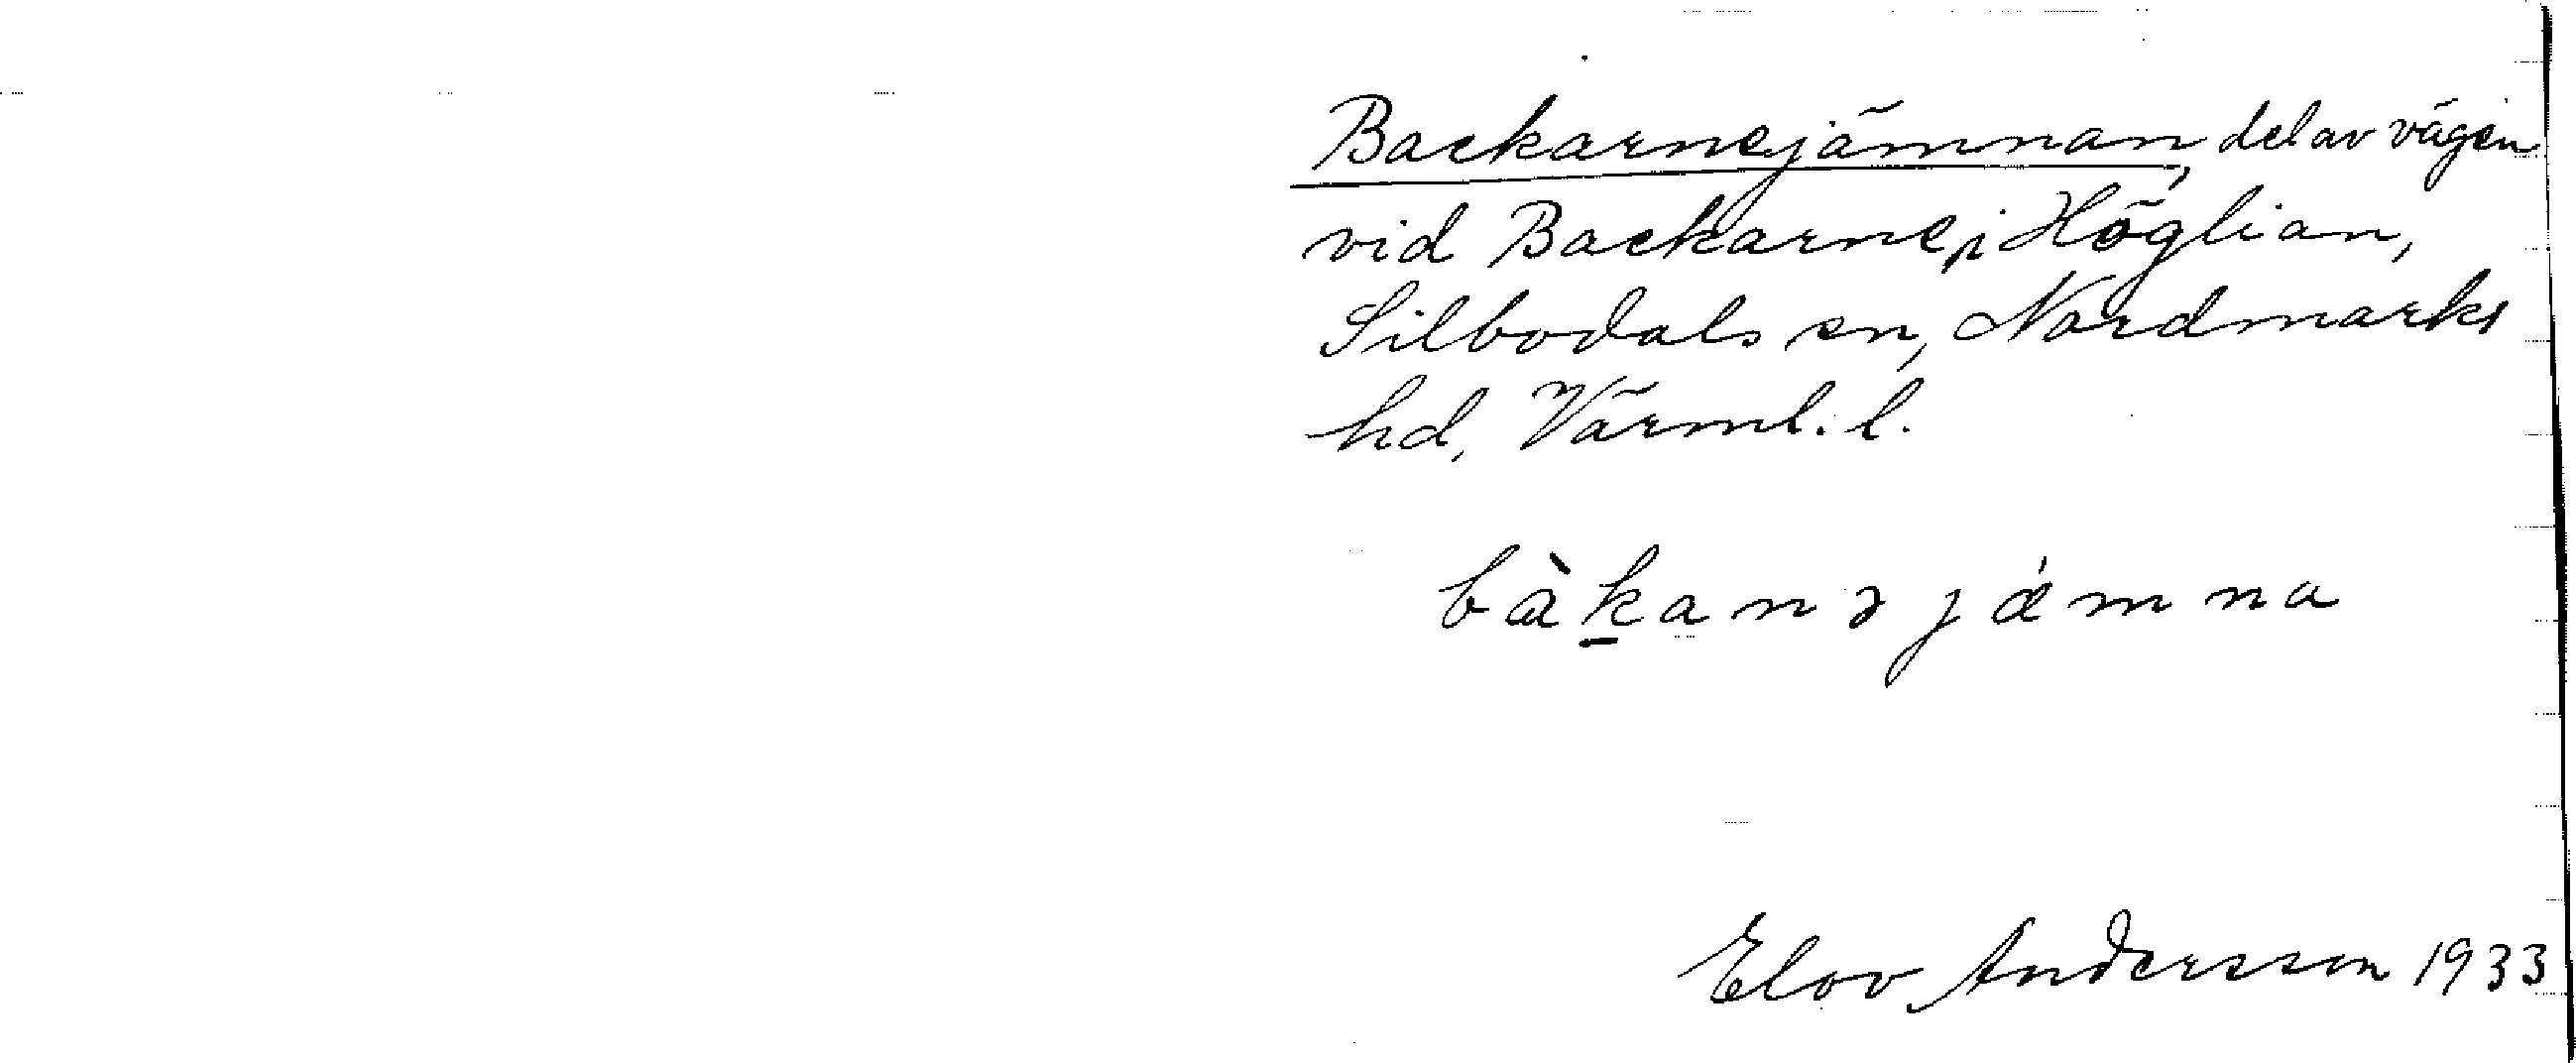 Backarnejämnan, del av vägen
vid Backarne, i Höglian,
Silbodals sn, Nordmarks
hd, Värml. l.
bàk̠anəjámna
Elov Andersson 1933